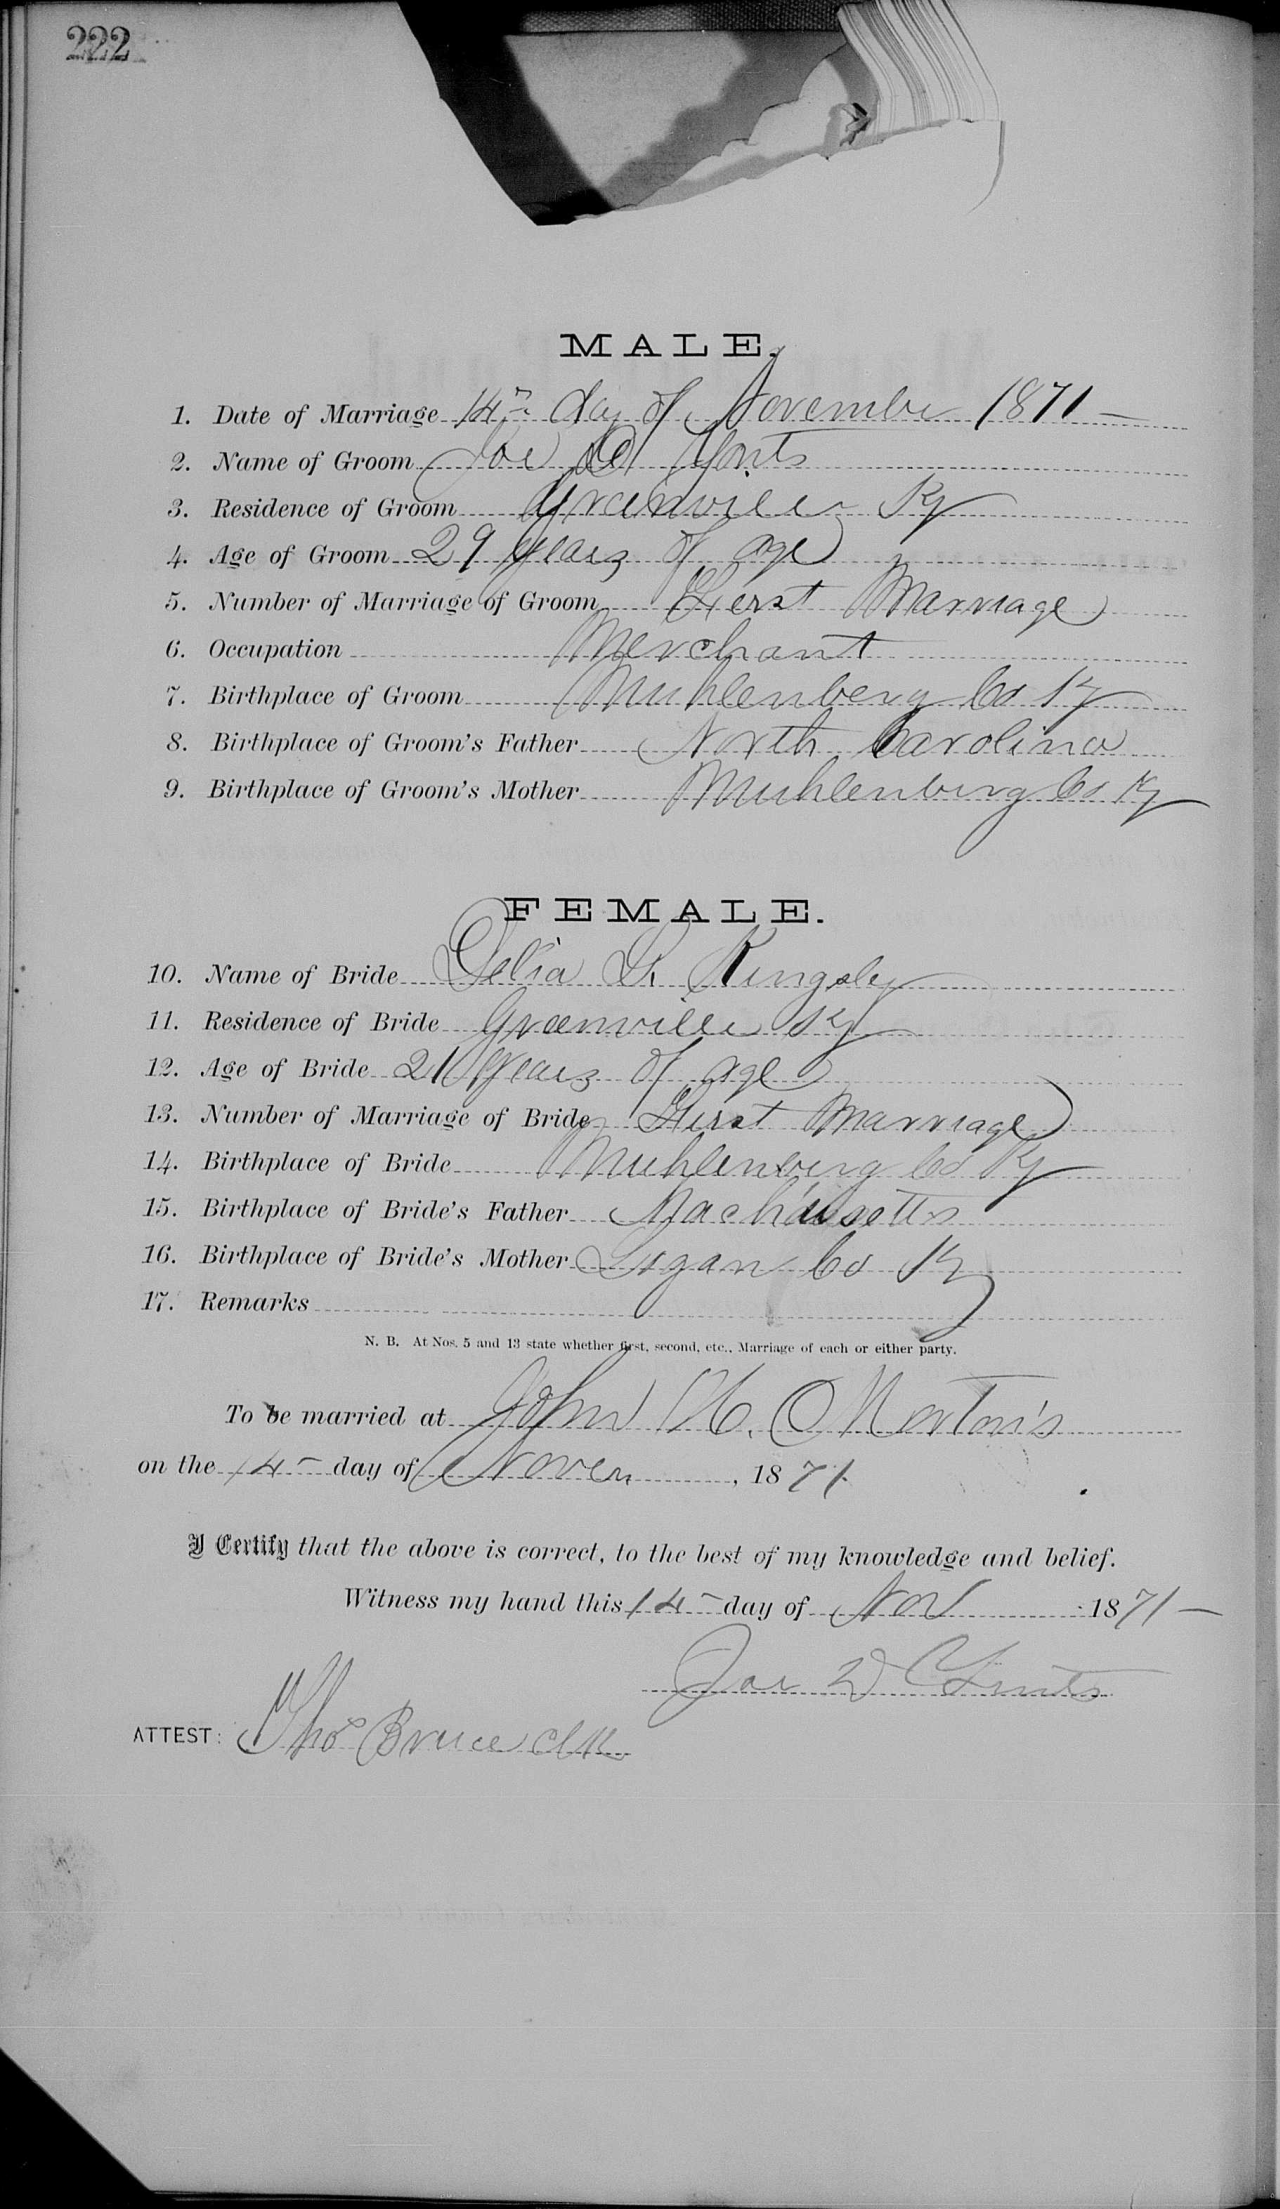 222
MALE.
1. Date of Marriage 14th day of November 1871
2. Name of Groom Joe D Yonts
3. Residence of Groom Greenville Ky
4. Age of Groom 29 years of age
5. Number of Marriage of Groom First Marriage
6. Occupation Merchant
7. Birthplace of Groom Muhlenberg Co Ky
8. Birthplace of Groom's Father North Carolina
9. Birthplace of Groom's Mother Muhlenberg Co Ky
FEMALE.
10. Name of Bride Delia G. Kingsley
11. Residence of Bride Greenville Ky
12. Age of Bride 21 years of age
13. Number of Marriage of Bride First Marriage
14. Birthplace of Bride Muhlenberg Co Ky
15. Birthplace of Bride's Father
16. Birthplace of Bride's Mother Logan Co Ky
17. Remarks
N. B. At Nos. 5 and 13 state whether first, second, etc., Marriage of each or either party.
To be married at John H. Morton's
on the 14 day of Novem, 1871
I Certify that the above is correct, to the best of my knowledge and belief.
Witness my hand this 14 day of Nov 1871
Joe D Yonts
ATTEST: Thos Bruce Clk